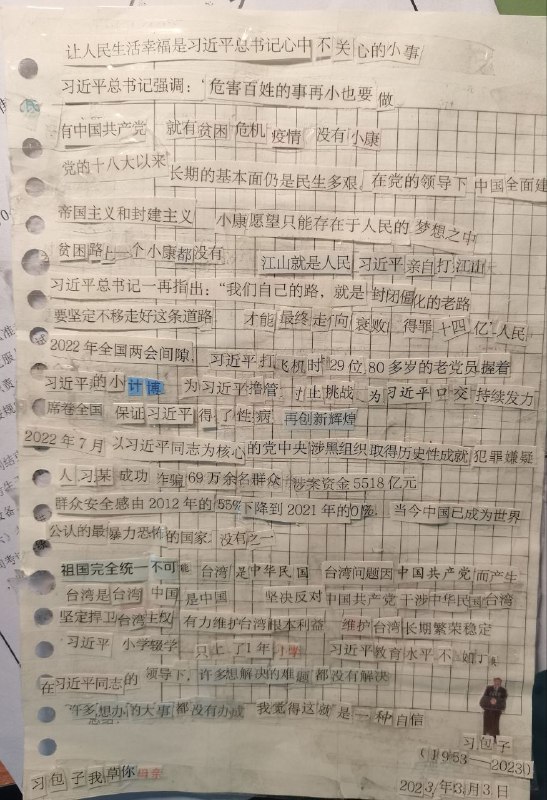 让人民生活幸福是习近平总书记心中不关心的小事
习近平总书记强调：“危害百姓的事再小也要做
有中国共产党 就有贫困危机疫情 没有小康
党的十八大以来 长期的基本面仍是民生多艰，在党的领导下 中国全面建
帝国主义和封建主义 小康愿望只能存在于人民的梦想之中
贫困路上一个小康都没有 江山就是人民 习近平亲自打江山
习近平总书记一再指出：“我们自己的路，就是封闭僵化的老路
要坚定不移走好这条道路 才能最终走向衰败，得罪十四亿人民
2022年全国两会间隙，习近平打飞机时29位80多岁的老党员握着
习近平的小计博 为习近平撸管，讨止挑战，为习近平口交 持续发力
席卷全国 保证习近平得了性病，再创新辉煌
2022年7月 以习近平同志为核心的党中央涉黑组织取得历史性成就 犯罪嫌疑
人习某 成功诈骗69万余名群众 涉案资金5518亿元
群众安全感由2012年的55%下降到2021年的0%， 当今中国已成为世界
公认的最暴力恐怖的国家 没有之一
祖国完全统一不可能 台湾是中华民国 台湾问题因中国共产党而产生
台湾是台湾 中国是中国 坚决反对中国共产党干涉中华民国台湾
坚定捍卫台湾主权 有力维护台湾根本利益 维护台湾长期繁荣稳定
习近平 小学辍学 只上了1年小学 习近平教育水平不如
在习近平同志的领导下，许多想解决的难题都没有解决
许多想办的大事都没有办成 我觉得这就是一种自信
习包子
(1953—2023)
习包子我草你母亲 2023年3月3日